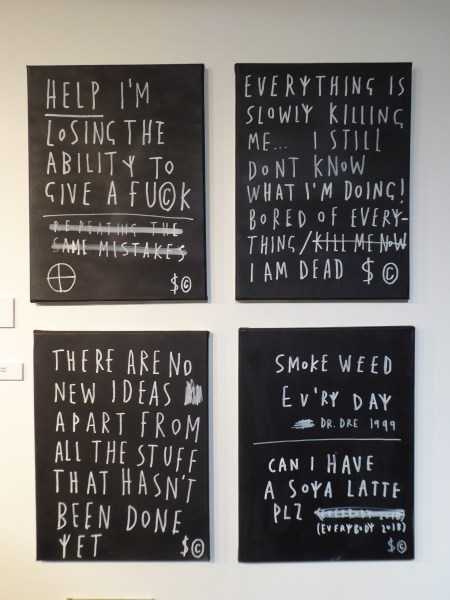 HELP I'M
LOSING THE
ABILITY TO
GIVE A FU©K
REPEATING THE
SAME MISTAKES
$©
EVERYTHING IS
SLOWLY KILLING
ME... I STILL
DONT KNOW
WHAT I'M DOING!
BORED OF EVERY-
THING/KILL ME NOW
I AM DEAD $ ©
THERE ARE NO
NEW IDEAS
APART FROM
ALL THE STUFF
THAT HASN'T
BEEN DONE
YET $©
SMOKE WEED
EV'RY DAY
DR. DRE 1999
CAN I HAVE
A SOYA LATTE
PLZ
(EVERYBODY 2018)
$©